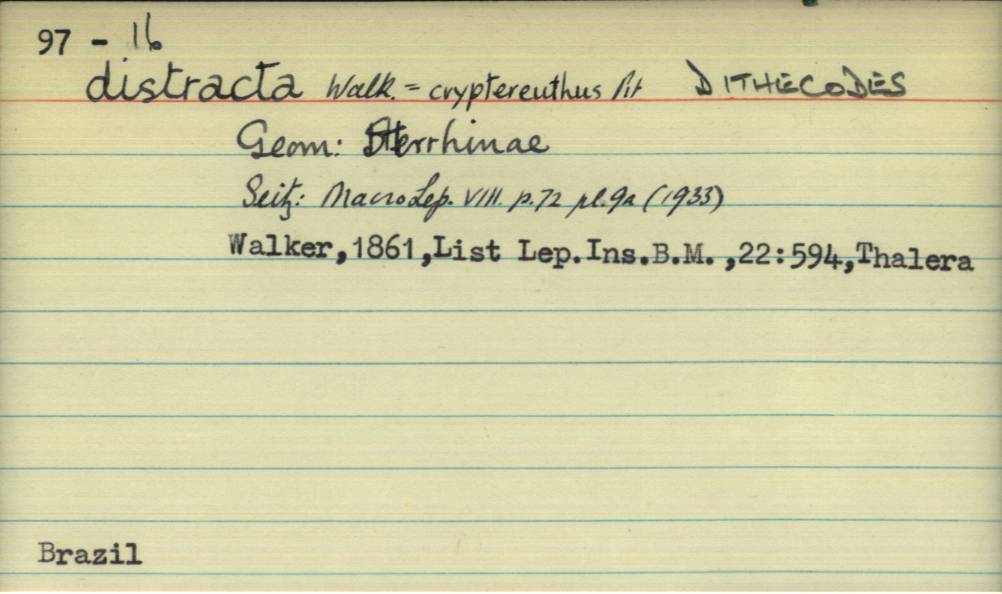 97 - 16
distracta Walk. = cryptereuthus Pit DITHECODES
Geom: Sterrhinae
Seitz: MacroLep. VIII. p.72 pl.9a (1933)
Walker,1861,List Lep.Ins.B.M.,22:594,Thalera
Brazil